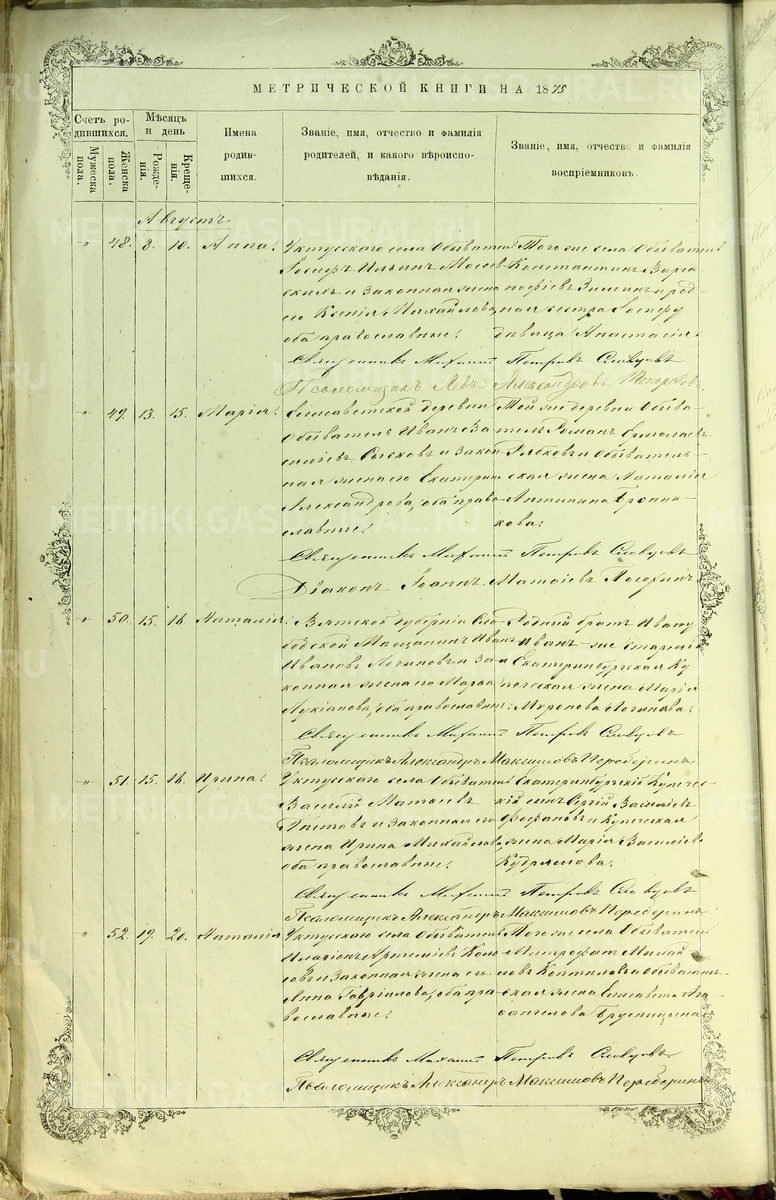 МЕТРИЧЕСКОЙ КНИГИ НА 1875
Счетъ ро-
дившихся.
Мужеска
пола.
Женска
пола.
Мѣсяцъ
и день
Рожде-
нія.
Креще-
нія.
Имена
родив-
шихся.
Званіе, имя, отчество и фамилія
родителей, и какого вѣроиспо-
вѣданія.
Званіе, имя, отчество и фамилія
воспріемниковъ.
Августъ
" 48. 8. 10. Анна.
Уктусского села Обыватель
Іосифъ Ильинъ
и законная жена
его Ксенія Михайлова,
оба православные.
Того же села Обыватель
Константинъ
и род-
ная сестра Іосифу
дѣвица Анастасія.
Священникъ Михаилъ Петровъ Словцовъ
Псаломщикъ Левъ Александровъ
" 49. 13. 15. Марія.
Елисаветской деревни
Обыватель Иванъ Ва-
сильевъ и закон-
ная жена его Екатерина
Александрова, оба право-
славные.
Той же деревни Обыва-
тель Романъ Ермолаевъ
и Обыватель-
ская жена Наталія
Антипина Бронни-
кова.
Священникъ Михаилъ Петровъ Словцовъ
Діаконъ Іоаннъ Матѳіевъ
" 50. 15. 16. Наталія.
Вятской губерніи Сло-
бодской Мѣщанинъ Иванъ
Ивановъ Логиновъ и за-
конная жена его Марѳа
Лукіанова, оба православные.
Родный братъ Ивану
Иванъ же Старшій
и Екатеринбургская Ку-
печеская жена Марія
Миронова Логинова.
Священникъ Михаилъ Петровъ Словцовъ
Псаломщикъ Александръ Максимовъ Переберинъ
" 51. 15. 16. Ирина.
Уктусского села Обыватель
Василій Матѳеевъ
и законная его
жена Ирина Михайлова,
оба православные.
Екатеринбургскій Купечес-
кій сынъ Сергій Васильевъ
Фофановъ и Купеческая
жена Марія Васильева
Кудряшова.
Священникъ Михаилъ Петровъ Словцовъ
Псаломщикъ Александръ Максимовъ Переберинъ
" 52. 19. 20. Наталія
Уктусского села Обыватель
Иларіонъ Артеміевъ
и законная жена его
Анна Гавріилова, оба пра-
вославные.
Того же села Обыватель
Митрофанъ Михай-
ловъ Коптиловъ и Обыватель-
ская жена Елисавета Ага-
фангелова Брусницына.
Священникъ Михаилъ Петровъ Словцовъ
Псаломщикъ Александръ Максимовъ Переберинъ